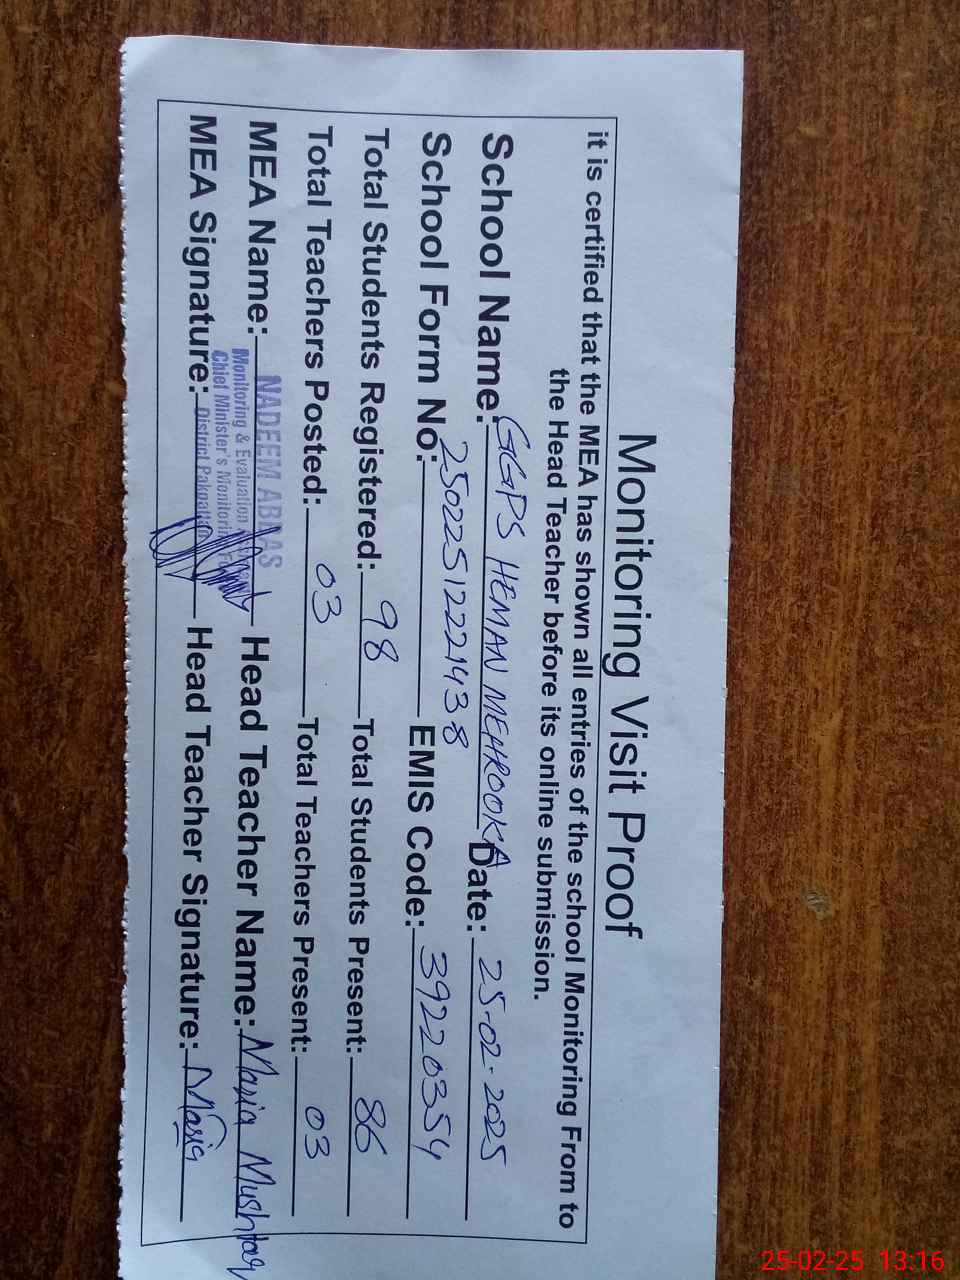 Monitoring Visit Proof
it is certified that the MEA has shown all entries of the school Monitoring From to
the Head Teacher before its online submission.
School Name: GGPS HEMAN MEHROOKA Date: 25-02-2025
School Form No: 25022512221438 EMIS Code: 39220354
Total Students Registered: 98 Total Students Present: 86
Total Teachers Posted: 03 Total Teachers Present: 03
MEA Name: NADEEM ABBAS Head Teacher Name: Maria Mushtaq
Monitoring & Evaluation
Chief Minister's Monitoring
MEA Signature: District Pakpattan Head Teacher Signature: Maria
25-02-25 13:16